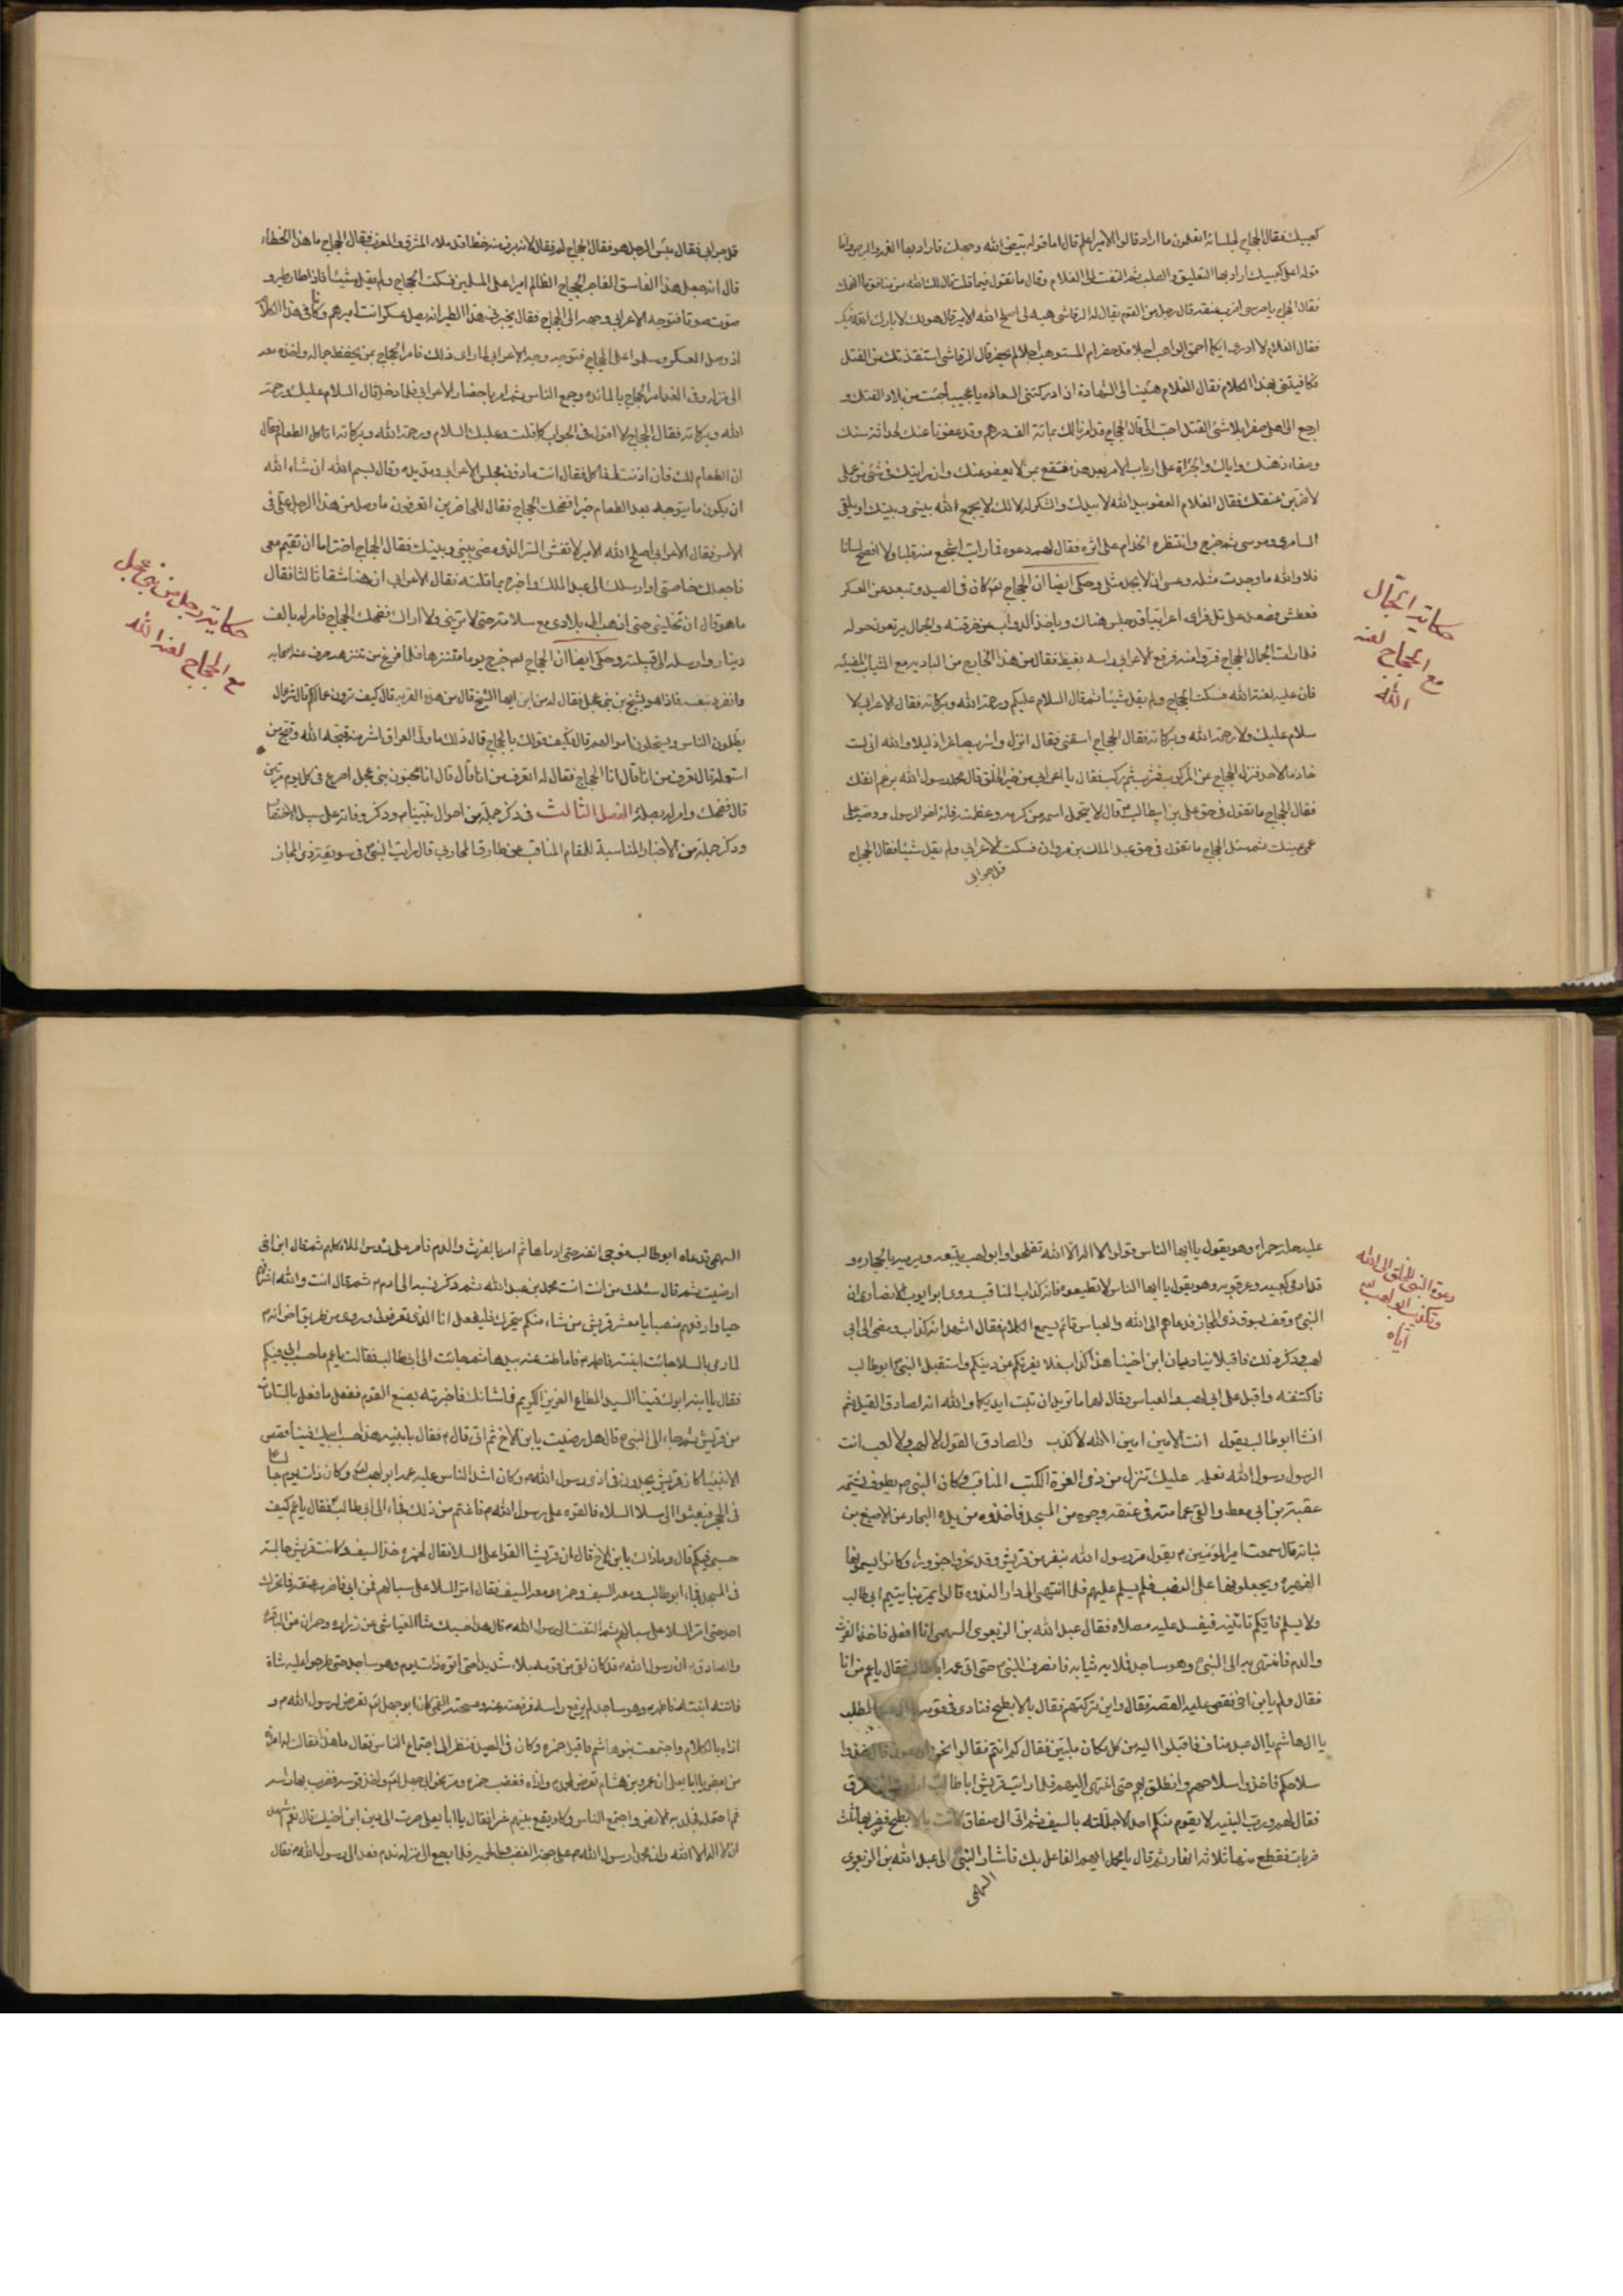 كعبيك فقال الحجاج لجلسائه اتعلمون ما اراد قالوا الامير اعلم قال اما قوله بيض الله وجهك فاراد بها
قوله اعلى كعبيك اراد بها التعليق والصلب ثم التفت الى الغلام وقال ما تقول فيما قلت قال قاتلك الله من منافق ما افهمك
فقال الحجاج يا حرسى اضرب عنقه قال رجل من القوم يقال له الرقاشى هبه لى اصلح الله الامير قال هو لك لا بارك الله فيك
فقال الغلام لا ادرى ايكما احمق الواهب اجلا قد حضر ام المستوهب اجلا لم يحضر قال الرقاشى استنقذتك من القتل
فكافيتنى بهذا الكلام فقال الغلام هنيئا لى الشهادة ان ادركتنى السعادة
ارجع الى اهلى صفر ايلا شئ القتل احب الى قال الحجاج قد امرنا لك بمائة الف درهم وقد عفونا عنك لحداثة سنك
وصفاء ذهنك واياك والجرأة على ارباب الامر بعد هذه فتقع بمن لا يعفو عنك وان رايتك فى شئ من عملى
لاضربن عنقك فقال الغلام العفو بيد الله لا بيدك والشكر له لا لك لا يجمع الله بينى وبينك او يلتقى
السامرى وموسى ثم خرج وانتظره الخدام على اثره فقال لهم دعوه فما رايت اشجع منه قلبا ولا افصح لسانا
فلا والله ما وجدت مثله وعسى ان لا يجد مثلى وحكى ايضا ان الحجاج لعنه كان فى الصيد وتبعد عن العسكر
فعطش فصعد على تل فراى اعرابيا قد جلس هناك وياخذ الدواب من خرقته والجمال يرتعون حوله
فلما رات الجمال الحجاج فروا منه فرفع الاعرابى راسه بغيظ فقال من هذا الخارج من البادية مع الثياب المضيئة
فان عليه لعنة الله فسكت الحجاج ولم يقل شيئا ثم قال السلام عليكم ورحمة الله وبركاته فقال الاعرابى لا
سلام عليك ولا رحمة الله وبركاته فقال الحجاج اسقنى فقال انزل واشرب صاغرا ذليلا والله انى لست
خادما لاحد فنزل الحجاج عن المركوب فشرب ثم ركب فقال يا اعرابى من خير الخلق قال محمد رسول الله برغم انفك
فقال الحجاج ما تقول فى حق على بن ابيطالب قال لا يتحمل اسمه من كرمه وعظمته فانه اخو الرسول ووصيه على
عمى عينك ثم سئل الحجاج ما تقول فى حق عبد الملك بن مروان فسكت الاعرابى ولم يقل شيئا فقال الحجاج
قل جوابى
حكاية الجمال
مع الحجاج لعنه
الله
قل جوابى فقال بئس الرجل هو فقال الحجاج لم فقال لانه برز منه خطأ قد ملاء المشرق والمغرب فقال الحجاج ما هذا الخطاء
قال انه جعل هذا الفاسق الفاجر الحجاج الظالم اميرا على المسلمين فسكت الحجاج ولم يقل شيئا فاذا طار طير و
صوت صوتا فتوجه الاعرابى وجهه الى الحجاج فقال يخبر هذا الطير انه يصل عسكر انت اميرهم وكانا فى هذا الكلام
اذ وصل العسكر وسلموا على الحجاج فتوجه وجه الاعرابى لما راى ذلك فامر الحجاج بمن يحفظ جماله واخذه معه
الى منزله وفى الغد امر الحجاج بالمائدة وجمع الناس ثم امر باحضار الاعرابى فلما دخل قال السلام عليك ورحمة
الله وبركاته فقال الحجاج لا اقول فى الجواب كما قلت وعليك السلام ورحمة الله وبركاته اتاكل الطعام فقال
ان الطعام لك فان اذنت لى فاكل فقال انت ماذون فجلس الاعرابى ومد يده وقال بسم الله ان شاء الله
ان يكون ما يتوجه بعد الطعام خيرا فضحك الحجاج فقال للحاضرين اتعرفون ما وصل من هذا الرجل على فى
الامس فقال الاعرابى اصلح الله الامير لا تفش السر الذى مضى بينى وبينك فقال الحجاج اختر اما ان تقيم معى
فاجعلك خاصتى او ارسلك الى عبد الملك واخبره بما قلته فقال الاعرابى ان هنا شقا ثالثا فقال
ما هو قال ان تخلينى حتى اذهب الى بلادى مع سلامة حتى لا ترينى ولا اراك فضحك الحجاج فامر له بالف
دينار وارسله الى قبيلته وحكى ايضا ان الحجاج لعنه خرج يوما متنزها فلما فرغ من تنزهه صرف عنه اصحابه
وانفرد بنفسه فاذا هو بشيخ من بنى عجل فقال له من اين ايها الشيخ قال من هذه القرية قال كيف ترون عمالكم قال شر عمال
يظلمون الناس ويستحلون اموالهم قال فكيف قولك بالحجاج قال ذلك ما ولى العراق اشر منه قبحه الله وقبح من
استعمله قال اتعرف من انا قال لا قال انا الحجاج فقال له اتعرف من انا قال لا قال انا مجنون بنى عجل اصرع فى كل يوم مرتين
قال فضحك وامر له بصلة الفصل الثالث فى ذكر جملة من احوال نبينا ص وذكر وفاته على سبيل الاختصار
وذكر جملة من الاخبار المناسبة للمقام المناقب عن طارق المحاربى قال رايت النبى ص فى سويقة ذى المجاز
حكاية رجل من بنى عجل
مع الحجاج لعنه الله
عليه حلة حمراء وهو يقول يا ايها الناس قولوا لا اله الا الله تفلحوا وابو لهب يتبعه ويرميه بالحجارة و
قد ادمى كعبيه وعرقوبيه وهو يقول يا ايها الناس لا تطيعوه فانه كذاب المناقب روى ابو ايوب الانصارى ان
النبى ص وقف بسوق ذى المجاز فدعاهم الى الله والعباس قائم يسمع الكلام فقال اشهد انه كذاب ومضى الى ابى
لهب وذكر ذلك فاقبلا يناديان ان ابن اخينا هذا كذاب فلا يغرنكم عن دينكم واستقبل النبى ص ابو طالب
فاكتنفه واقبل على ابى لهب والعباس وقال لهما ما تريدان تبت ايديكما والله انه لصادق القيل ثم
انشا ابو طالب يقول انت الامين امين الله لا كذب والصادق القول لا لهو ولا لعب انت
الرسول رسول الله نعلمه عليك تنزل من ذى العزة الكتب المناقب وكان النبى ص يطوف فشتمه
عقبة بن ابى معط والقى عمامته فى عنقه وجره من المسجد فاخذوه من يده البحار عن الاصبغ بن
نباتة قال سمعت امير المؤمنين ع يقول مر رسول الله بنفر من قريش وقد نحروا جزورا وكانوا يسمونها
الفهيرة ويجعلونها على النصب فلم يسلم عليهم فلما انتهى الى دار الندوة قالوا يمر بنا يتيم ابى طالب
ولا يسلم فايكم ياتيه فيفسد عليه مصلاه فقال عبد الله بن الزبعرى السهمى انا افعل فاخذ الفرث
والدم فانتهى به الى النبى ص وهو ساجد فملا به ثيابه فانصرف النبى ص حتى اتى عمه ابا طالب فقال يا عم من انا
فقال ولم يابن اخى فقص عليه القصة فقال واين تركتهم فقال بالابطح فنادى فى قومه يا ال عبد المطلب
يا ال هاشم يا ال عبد مناف فاقبلوا اليه من كل مكان ملبين فقال كم انتم فقالوا نحن اربعون قال خذوا
سلاحكم فاخذوا سلاحهم وانطلق بهم حتى انتهى اليهم فلما رات قريش ابا طالب ارادت ان تتفرق
فقال لهم ورب البنية لا يقوم منكم احد الا جللته بالسيف ثم اتى الى صفاة كانت بالابطح فضربها ثلث
ضربات فقطع منها ثلاثة انهار ثم قال يا محمد ايهم الفاعل بك فاشار النبى الى عبد الله بن الزبعرى
السهمى
دعوة النبى الخلق الى الله
وتكذيب ابو لهب
اياه
السهمى فدعاه ابو طالب فوجى انفه حتى ادماها ثم امر بالفرث والدم فامر على رؤس الملاء كلهم ثم قال ابن اخى
ارضيت ثم قال سئلت من انت انت محمد بن عبد الله ثم ذكر نسبه الى ادم ع ثم قال انت والله اشرفهم
حيا وارفعهم منصبا يا معشر قريش من شاء منكم يتحرك فليفعل انا الذى تعرفونى وروى من طريق اخر انه ص
لما رمى بالسلا جائت ابنته فاطمه ع فاماطت عنه بيدها ثم جائت الى ابى طالب فقالت يا عم ما حسب ابى فيكم
فقال يا ابنة ابوك فينا السيد المطاع العزيز الكريم فما شانك فاخبرته بصنع القوم ففعل ما فعل بالسادات
من قريش ثم جاء الى النبى ص قال هل رضيت يابن الاخ ثم اتى فاطمه ع فقال يا بنية هذا حسب ابيك فينا قصص
الانبياء كان قريش يجدون فى اذى رسول الله ص وكان اشد الناس عليه عمه ابو لهب وكان ذات يوم جالسا
فى الحجر فبعثوا الى سلا الشاة فالقوه على رسول الله ص فاغتم من ذلك فجاء الى ابى طالب فقال يا عم كيف
حسبى فيكم قال وما ذاك يابن الاخ قال ان قريشا القوا على السلا فقال لحمزة خذ السيف وكانت قريش جالسة
فى المسجد فجاء ابو طالب ومعه السيف وحمزة ومعه السيف فقال امر السلا على سبالهم فمن ابى فاضرب عنقه فما تحرك
احد حتى امر السلا على سبالهم ثم التفت الى رسول الله ص وقال هذا حسبك فينا العياشى عن زرارة وحمران عن الباقر
والصادق ع ان رسول الله ص قد كان لقى من قومه بلاء شديدا حتى اتوه ذات يوم وهو ساجد حتى طرحوا عليه شاة
فاتته ابنته فاطمه ع وهو ساجد لم يرفع راسه فرفعته عنه ومسحته القمى كان ابو جهل لعنه تعرض لرسول الله ص و
اذاه بالكلام واجتمعت بنو هاشم فاقبل حمزة وكان فى الصيد فنظر الى اجتماع الناس فقال ما هذا فقالت له امراة
من بعض يا ابا يعلى ان عمرو بن هشام تعرض لمحمد ص واذاه فغضب حمزة ومر نحو ابى جهل لعنه واخذ قوسه فضرب بها راسه
ثم احتمله فجلد به الارض واجتمع الناس وكاد يقع بينهم شر فقال يا ابا يعلى صبوت الى دين ابن اخيك قال نعم اشهد
ان لا اله الا الله وان محمدا رسول الله ص على جهة الغضب والحمية فلما رجع الى منزله ندم فغدا الى رسول الله ص فقال